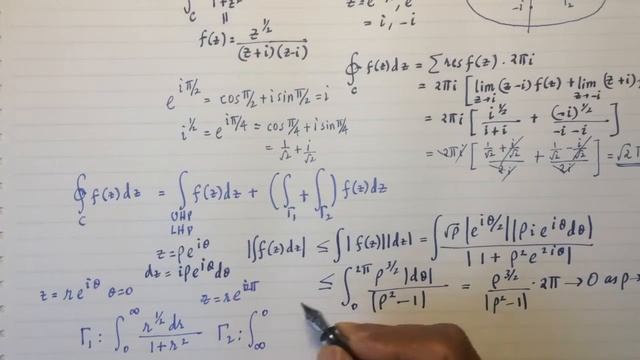 ∮_C 1+z² z=e , e
|| = i, -i -i Γ₂
f(z) = z^{1/2} / (z+i)(z-i)
∮_C f(z)dz = ∑ res f(z) · 2πi
e^{iπ/2} = cos π/2 + i sin π/2 = i
= 2πi [ lim_{z→i} (z-i) f(z) + lim_{z→-i} (z+i)
i^{1/2} = e^{iπ/4} = cos π/4 + i sin π/4
= 2πi [ i^{1/2} / i+i + (-i)^{1/2} / -i-i ]
= 1/√2 + i/√2
= 2πi [ 1/√2 + i/√2 / 2i + 1/√2 - i/√2 / 2i ] = √2 π
∮_C f(z)dz = ∫_{UHP LHP} f(z)dz + ( ∫_{Γ₁} + ∫_{Γ₂} ) f(z)dz
z = ρe^{iθ} |∫f(z)dz| ≤ ∫|f(z)||dz| = ∫ √ρ |e^{iθ/2}||ρ i e^{iθ}dθ| / |1+ρ²e^{2iθ}|
dz = iρe^{iθ}dθ
≤ ∫_0^{2π} ρ^{3/2}|dθ| / |ρ²-1| = ρ^{3/2} / |ρ²-1| · 2π → 0 as ρ→
z = re^{iθ} θ=0 z = re^{i2π}
Γ₁: ∫_0^∞ r^{1/2}dr / 1+r² Γ₂: ∫_∞^0